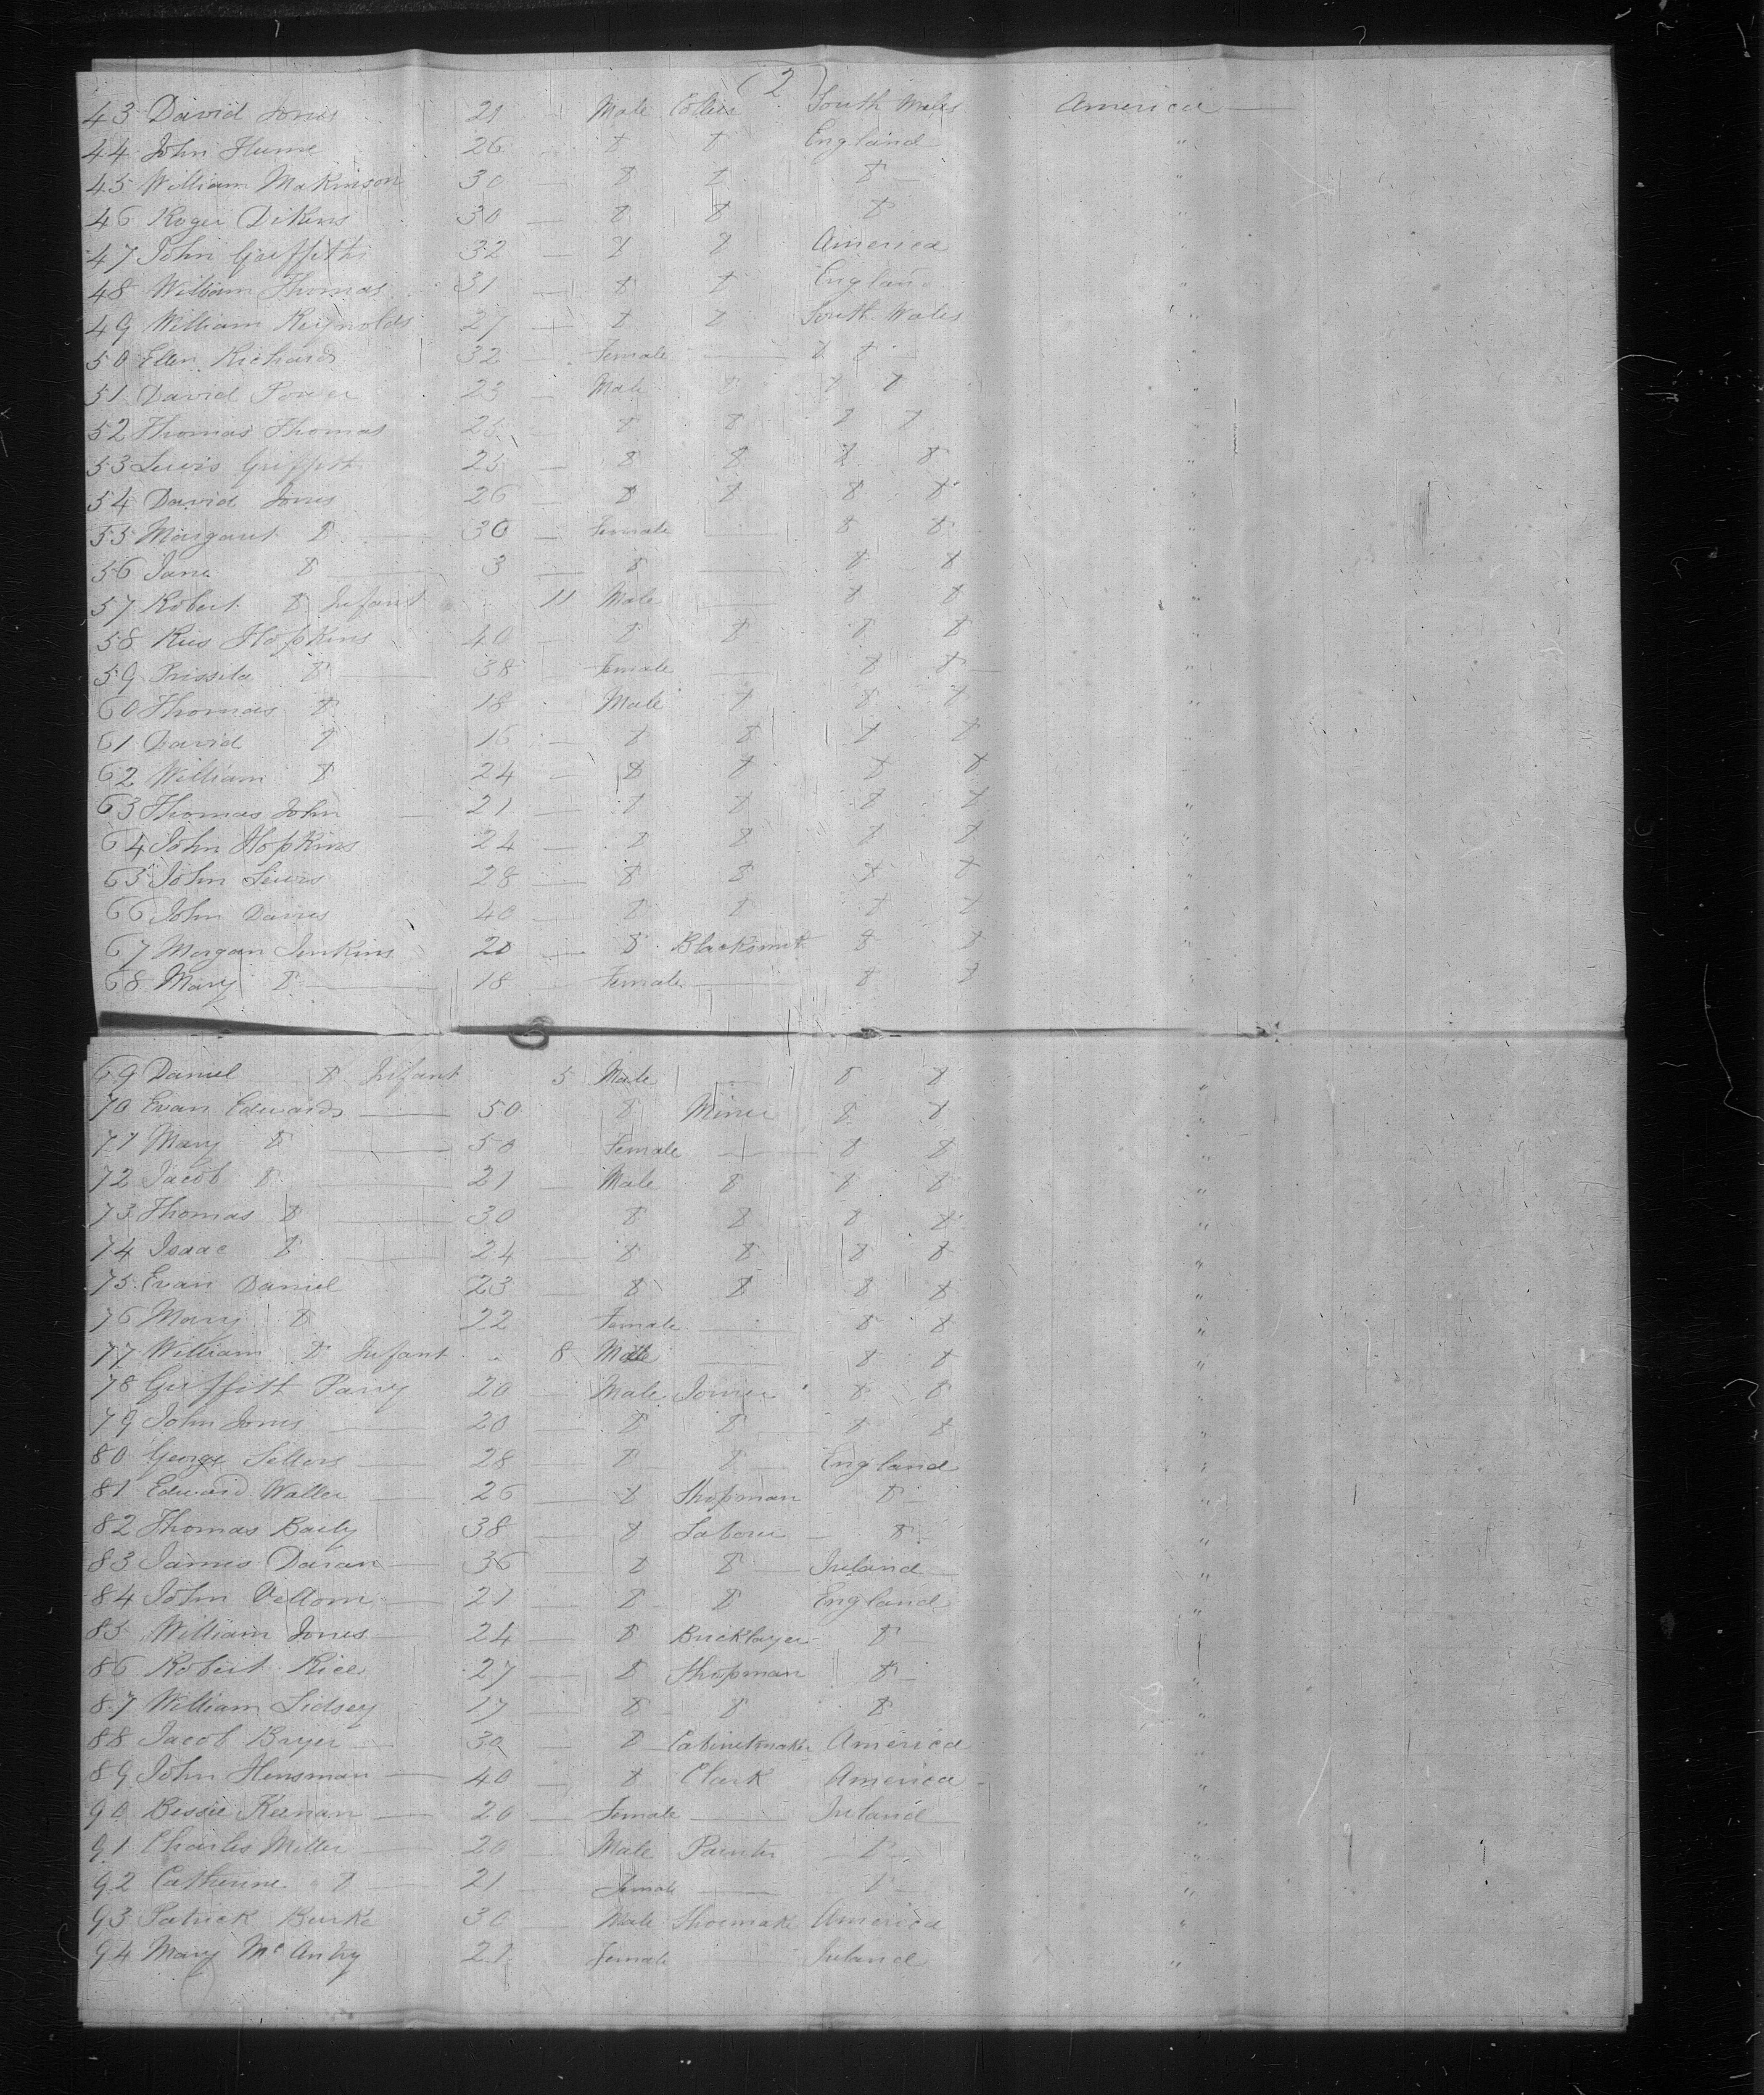 (2)
43 David Jones 21 Male Collier South Wales America
44 John Hume 26 " " England "
45 William Makinson 30 — " " " "
46 Roger Dikens 30 — " " " "
47 John Griffiths 32 — " " America "
48 William Thomas 31 — " " England "
49 William Reynolds 27 — " " South Wales "
50 Ellen Richards 32 Female — " " "
51 David Power 23 — Male " " " "
52 Thomas Thomas 25 " " " " "
53 Lewis Griffith 25 — " " " " "
54 David Jones 26 — " " " " "
55 Margaret " — 30 — Female — " " "
56 Jane " — 3 — " — " " "
57 Robert " Infant 11 Male — " " "
58 Rees Hopkins 40 — " " " " "
59 Prissila " — 38 Female — " " "
60 Thomas " 18 Male " " " "
61 David " 16 — " " " " "
62 William " 24 — " " " " "
63 Thomas John — 21 — " " " " "
64 John Hopkins 24 — " " " " "
65 John Lewis 28 — " " " " "
66 John Davies 40 — " " " " "
67 Morgan Jenkins 20 — " Blacksmit " " "
68 Mary " — 18 Female — " " "
69 Daniel " Infant 5 Male — " " "
70 Evan Edwards — 50 " Miner " " "
71 Mary " — 50 Female — " " "
72 Jacob " — 21 — Male " " " "
73 Thomas " — 30 " " " " "
74 Isaac " — 24 — " " " " "
75 Evan Daniel 23 — " " " " "
76 Mary " 22 Female — " " "
77 William " Infant 8 Male — " " "
78 Griffith Parry 20 — Male Joiner " " "
79 John Jones — 20 — " " " " "
80 George Sellers — 28 — " " England "
81 Edward Waller — 26 — " Shopman " "
82 Thomas Baily 38 — " Laborer " "
83 James Daran — 36 — " " Ireland "
84 John — 21 — " " England "
85 William Jones — 24 — " Bricklayer " "
86 Robert Rice 27 — " Shopman " "
87 William Lidsey 17 — " " " "
88 Jacob Bayer — 30 — " Cabinetmaker America "
89 John Hensman — 40 — " Clark America "
90 Bessie Keenan — 20 — Female — Ireland "
91 Charles Miller — 20 — Male Painter " "
92 Catherine " — 21 — Female — " "
93 Patrick Burke 30 — Male Shoemake America "
94 Mary 21 Female — Ireland "